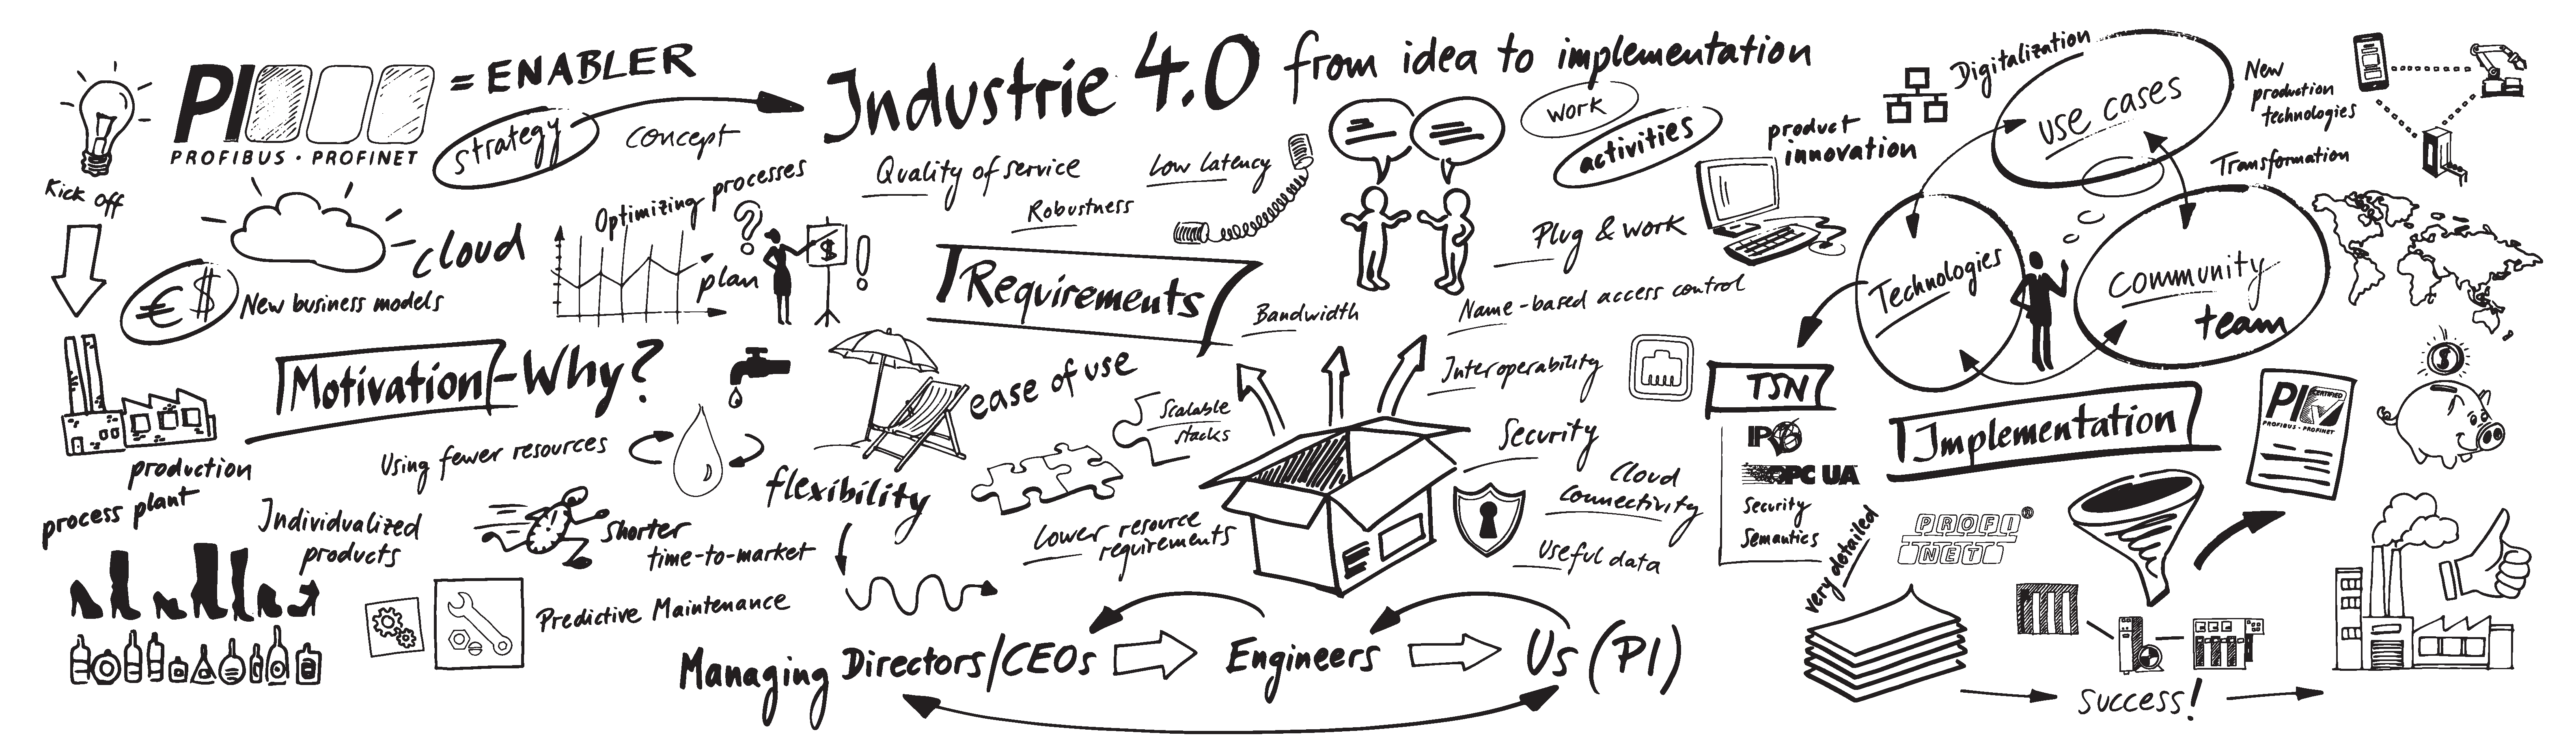 PI
PROFIBUS · PROFINET
= ENABLER
strategy
concept
Industrie 4.0 from idea to implementation
Kick off
cloud
€ $
New business models
Optimizing processes
plan
?
$
!
Motivation - Why?
production
process plant
Using fewer resources
Individualized
products
Shorter
time-to-market
Predictive Maintenance
flexibility
ease of use
Quality of service
Low latency
Robustness
Requirements
Bandwidth
work
activities
Plug & work
Name-based access control
Interoperability
Security
Cloud
connectivity
Useful data
Scalable
stacks
Lower resource
requirements
Managing Directors/CEOs
Engineers
Us (PI)
product
innovation
Digitalization
use cases
New
production
technologies
Transformation
Technologies
Community
team
TSN
IPV6
OPC UA
Security
Semantics
Implementation
$
PI
CERTIFIED
PROFIBUS · PROFINET
very detailed
PROFI
NET®
success!